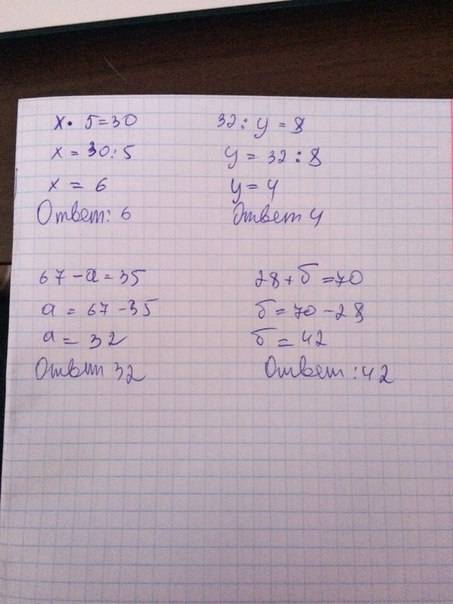 x · 5 = 30
x = 30 : 5
x = 6
Ответ: 6
32 : y = 8
y = 32 : 8
y = 4
Ответ 4
67 - a = 35
a = 67 - 35
a = 32
Ответ 32
28 + б = 70
б = 70 - 28
б = 42
Ответ : 42